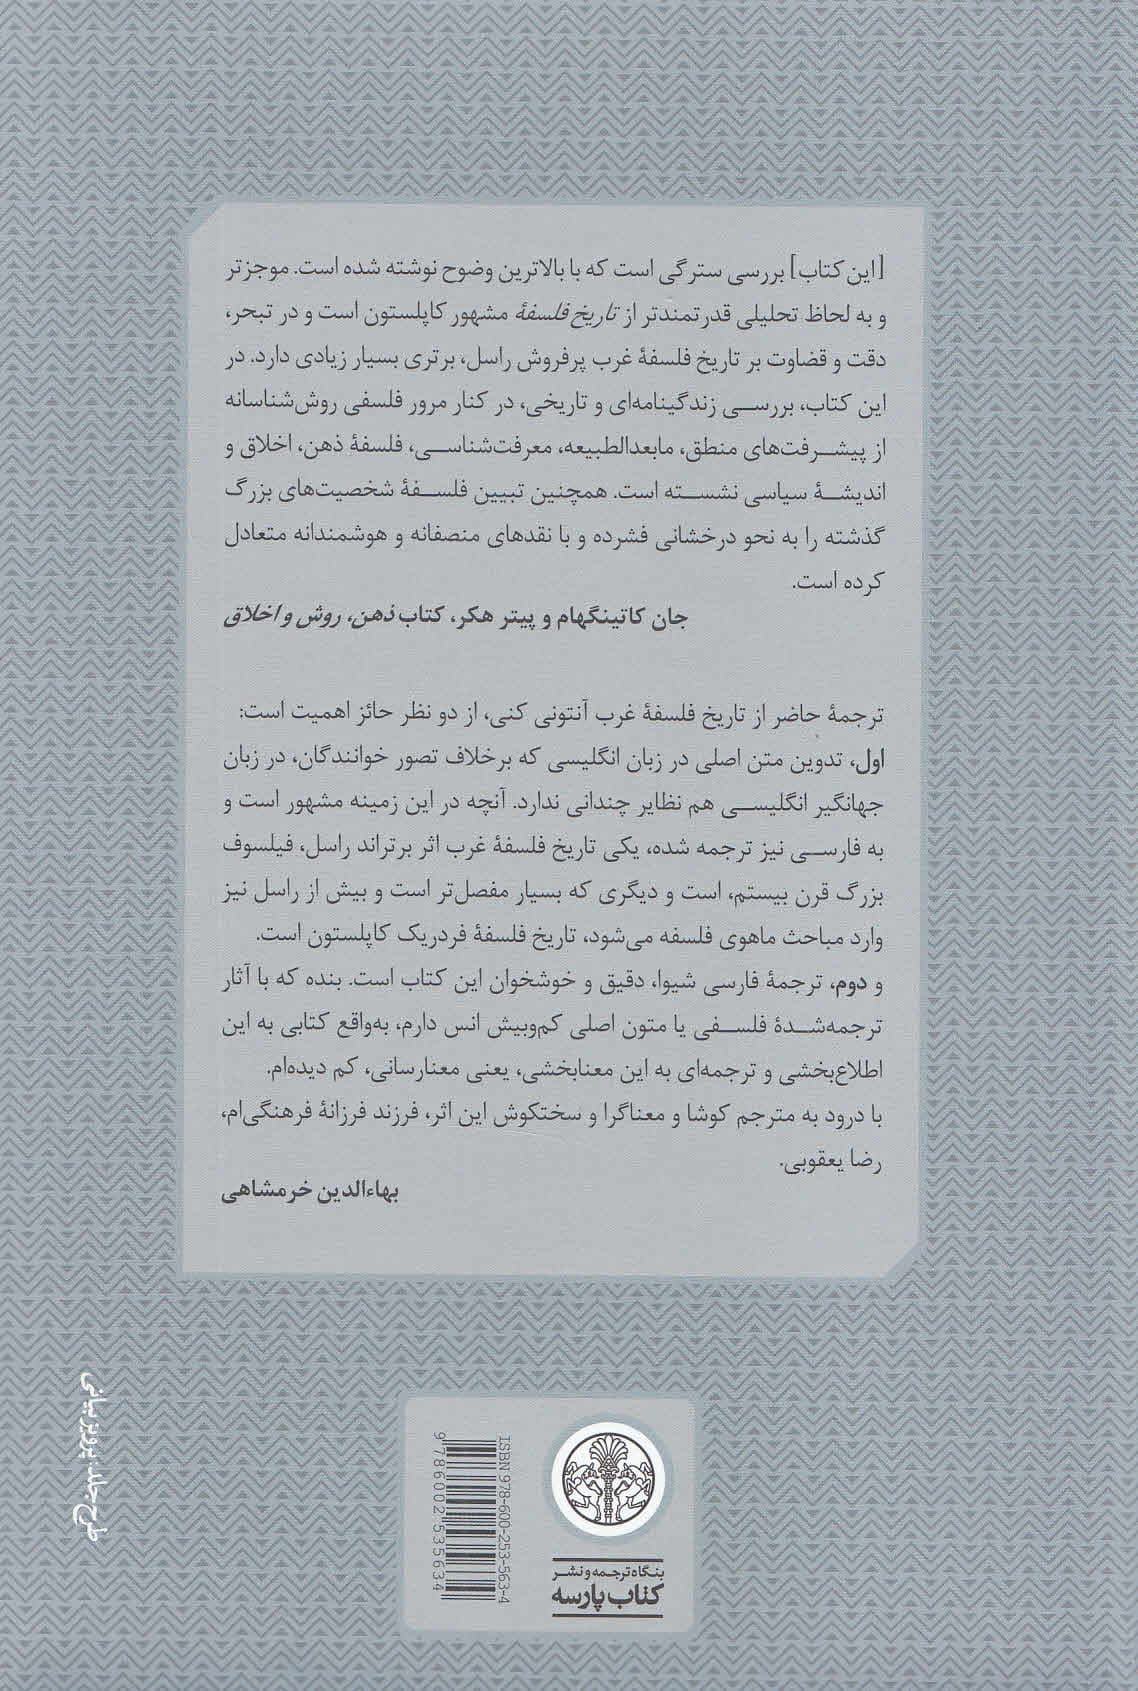 [این کتاب] بررسی سترگی است که با بالاترین وضوح نوشته شده است. موجزتر
و به لحاظ تحلیلی قدرتمندتر از تاریخ فلسفهٔ مشهور کاپلستون است و در تبحر،
دقت و قضاوت بر تاریخ فلسفهٔ غرب پرفروش راسل، برتری بسیار زیادی دارد. در
این کتاب، بررسی زندگینامه‌ای و تاریخی، در کنار مرور فلسفی روش‌شناسانه
از پیشرفت‌های منطق، مابعدالطبیعه، معرفت‌شناسی، فلسفهٔ ذهن، اخلاق و
اندیشهٔ سیاسی نشسته است. همچنین تبیین فلسفهٔ شخصیت‌های بزرگ
گذشته را به نحو درخشانی فشرده و با نقدهای منصفانه و هوشمندانه متعادل
کرده است.
جان کاتینگهام و پیتر هکر، کتاب ذهن، روش و اخلاق
ترجمهٔ حاضر از تاریخ فلسفهٔ غرب آنتونی کنی، از دو نظر حائز اهمیت است:
اول، تدوین متن اصلی در زبان انگلیسی که برخلاف تصور خوانندگان، در زبان
جهانگیر انگلیسی هم نظایر چندانی ندارد. آنچه در این زمینه مشهور است و
به فارسی نیز ترجمه شده، یکی تاریخ فلسفهٔ غرب اثر برتراند راسل، فیلسوف
بزرگ قرن بیستم، است و دیگری که بسیار مفصل‌تر است و بیش از راسل نیز
وارد مباحث ماهوی فلسفه می‌شود، تاریخ فلسفهٔ فردریک کاپلستون است.
و دوم، ترجمهٔ فارسی شیوا، دقیق و خوشخوان این کتاب است. بنده که با آثار
ترجمه‌شدهٔ فلسفی یا متون اصلی کم‌وبیش انس دارم، به‌واقع کتابی به این
اطلاع‌بخشی و ترجمه‌ای به این معنابخشی، یعنی معنارسانی، کم دیده‌ام.
با درود به مترجم کوشا و معناگرا و سختکوش این اثر، فرزند فرزانهٔ فرهنگی‌ام،
رضا یعقوبی.
بهاءالدین خرمشاهی
طرح جلد: پرویز بیانی
ISBN 978-600-253-563-4
9 786002 535634
بنگاه ترجمه و نشر
کتاب پارسه